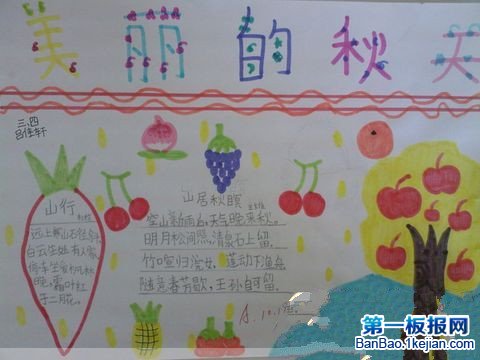 美丽的秋天
三、四
山行
远上寒山石径斜
白云生处有人家
停车坐爱枫林
晚，霜叶红
于二月花。
山居秋瞑
空山新雨后，天气晚来秋。
明月松间照，清泉石上留。
竹喧归浣女，莲动下渔舟
随意春芳歇，王孙自可留。
第一板报网
BanBao.1kejian.com